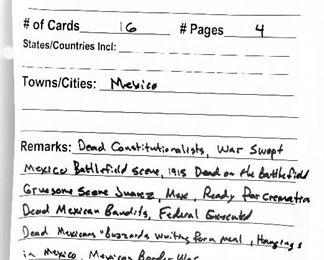 # of Cards 16 # Pages 4
States/Countries Incl:
Towns/Cities: Mexico
Remarks: Dead Constitutionalists, War Swept
Mexico Battlefield Scene, 1915 Dead on the Battlefield
Gruesome Scene Juarez, Mex, Ready for Cremation
Dead Mexican Bandits, Federal Executed
Dead Mexicans "Buzzards waiting for a meal, Hangings
in Mexico, Mexican Border War